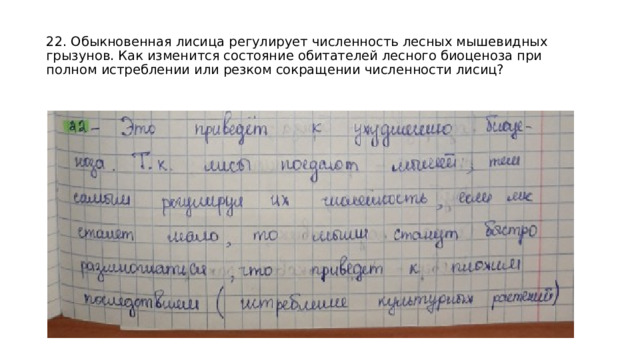 22. Обыкновенная лисица регулирует численность лесных мышевидных
грызунов. Как изменится состояние обитателей лесного биоценоза при
полном истреблении или резком сокращении численности лисиц?
22 – Это приведёт к ухудшению биоце-
ноза. Т.к. лисы поедают мышей, тем
самым регулируя их численность, если лис
станет мало, то мыши станут быстро
размножаться, что приведет к плохим
последствиям (истребление культурных растений)